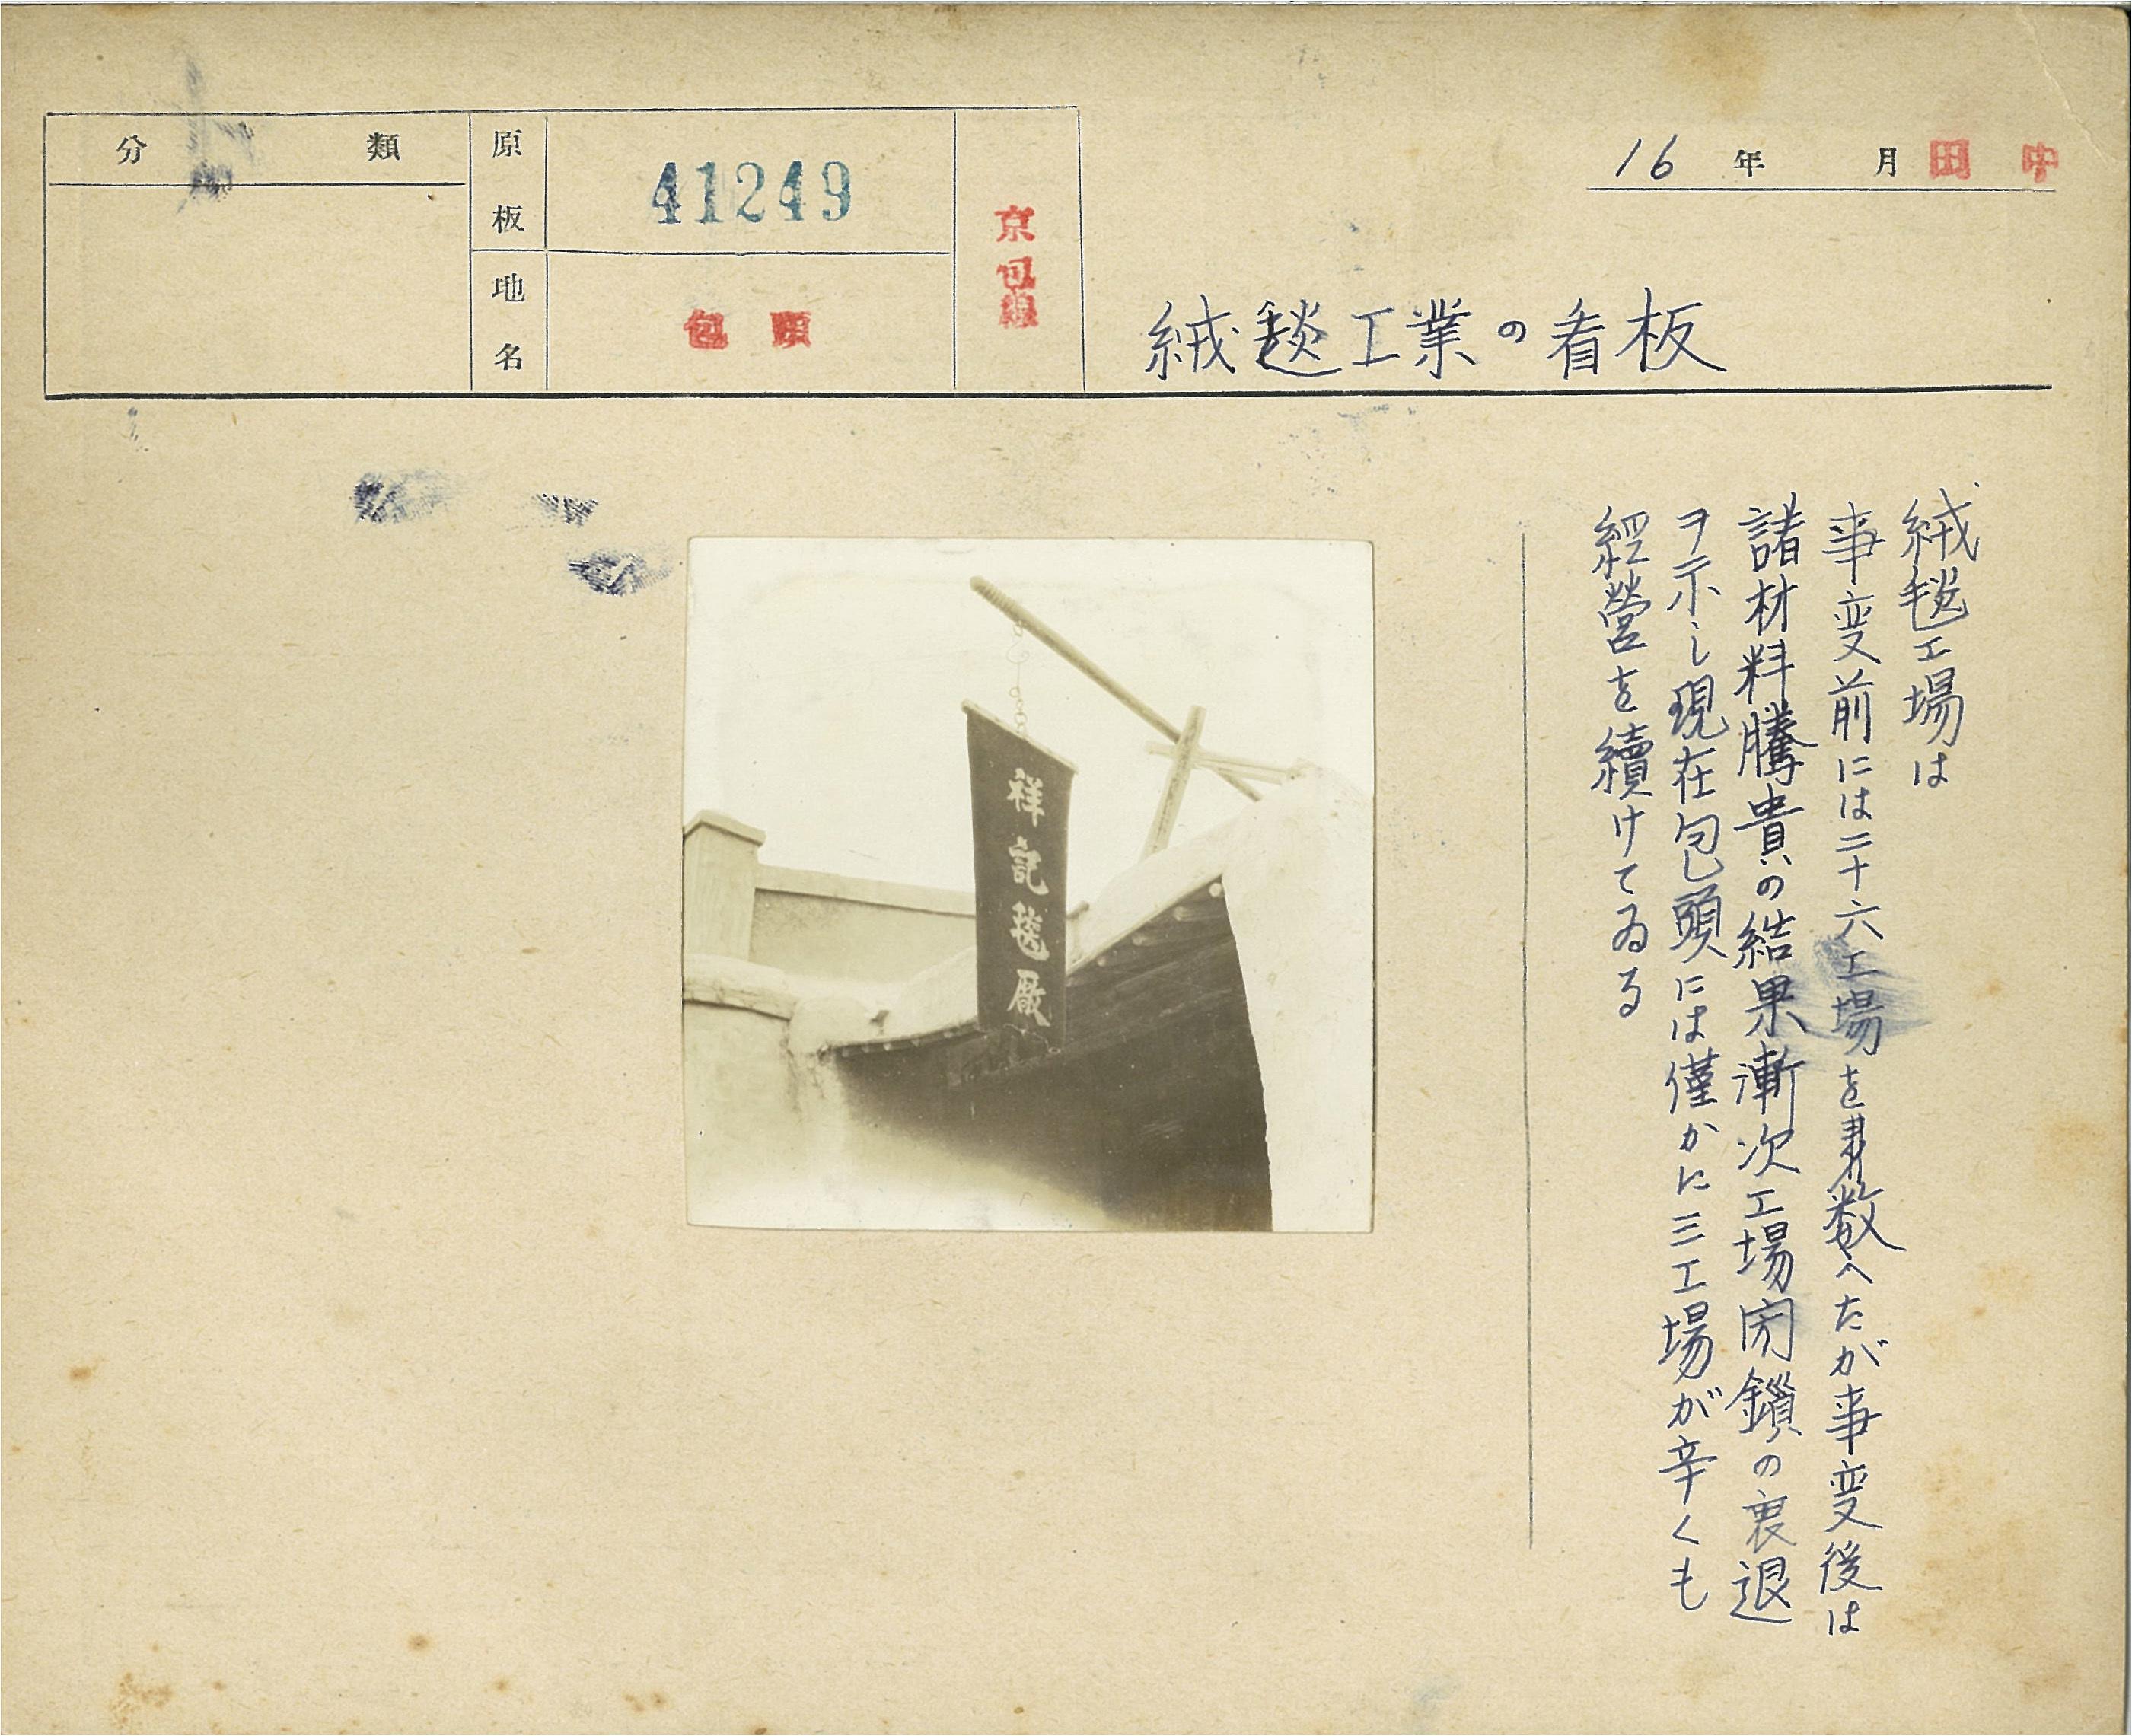 分類
原板
41249
地名
包頭
京包線
16年 月
田中
絨毯工業の看板
絨毯工場は
事変前には二十六工場を数へたが事変後は
諸材料騰貴の結果漸次工場閉鎖の衰退
ヲ示し現在包頭には僅かに三工場が辛くも
經營を續けてゐる
祥記毯厰